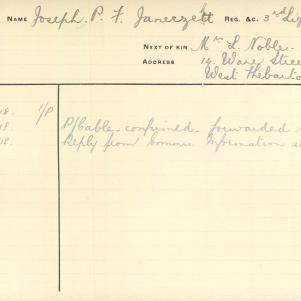 NAME Joseph. P. F. Janeczett REG. &C. 3rd Lig
NEXT OF KIN Mrs L. Noble.
ADDRESS 14 Ware Stree
West Thebarto
18. 1/P
P/Cable confirmed. forwarded
18. Reply from Commrs Information